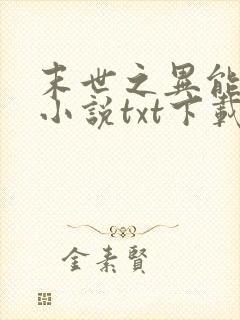 末世之異能
小說txt下載
金素賢